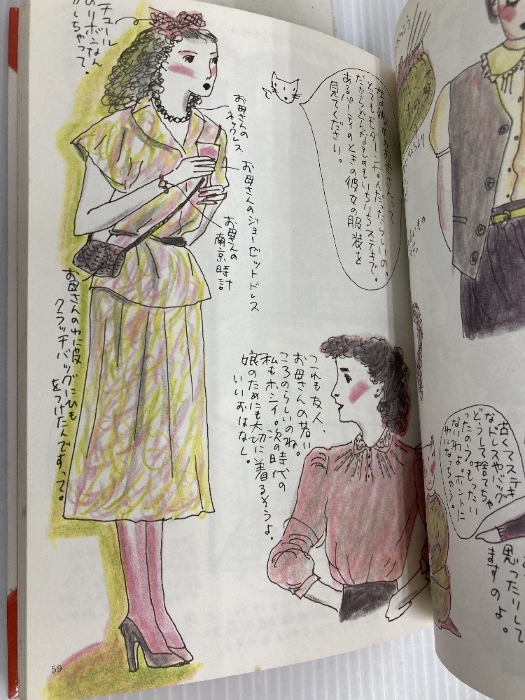 チュール
のリボンなん
かしちゃって。
お母さんの
ネックレス
お母さんのジョーゼットドレス
お母さんの
南京時計
お母さんのわに皮
クラッチバッグにひも
をつけたんですって。
だから
いちいちステキで。
あるパーティのときの彼女の服装を
見てください。
これも友人、
お母さんの若い
ころのらしいのね。
私もホシイ。次の時代の
娘のためにも大切に着るそうよ。
いいおはなし。
古くてステキ
なドレスやバッグ
どうして捨てちゃ
ったの？もったい
ないわよ
思ったりして
ますのよ。
59